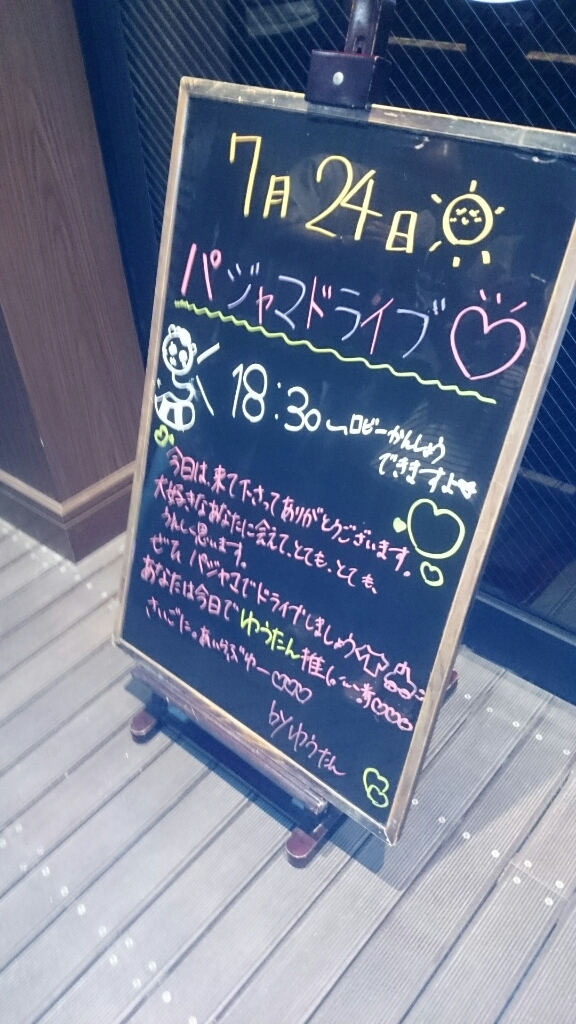 7月24日
パジャマドライブ
18:30〜ロビーかんしょう
できますよ
今日は、来て下さってありがとうございます。
大好きなあなたに会えて、とても、とても、
うれしく思います。
ぜひ、パジャマでドライブしましょう
あなたは今日でゆうたん推し〜
さいごに。あいらぶゆー♡♡♡
byゆうたん